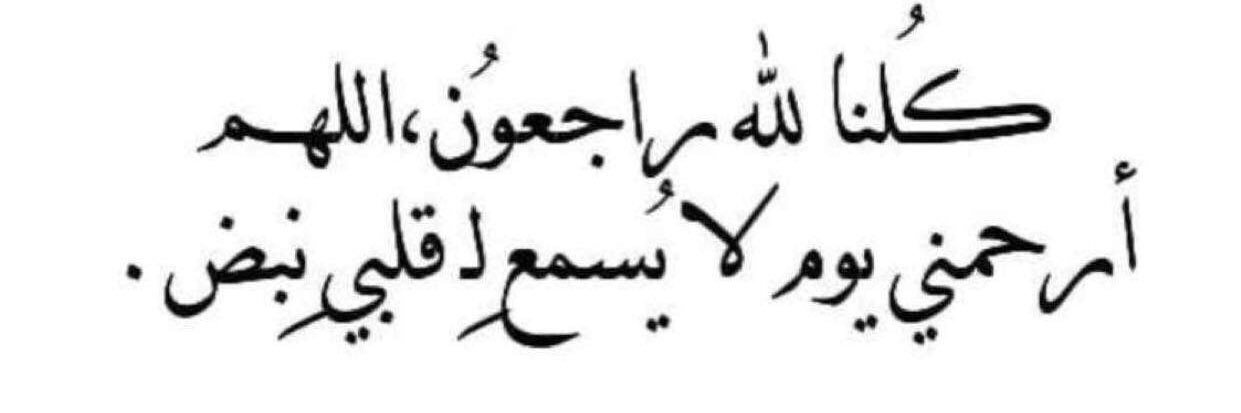 كُلنا لله راجعوُن،اللهم
أرحمني يوم لا يُسمع لـ قلبي نبض .